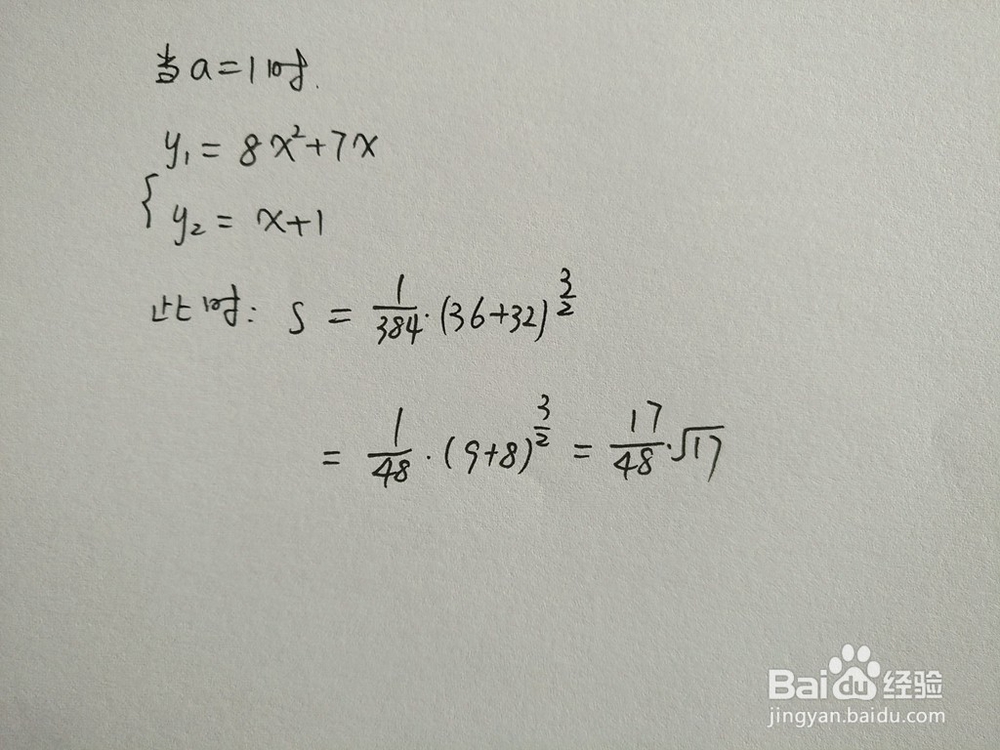 当a=1时.
y₁ = 8x²+7x
{ y₂ = x+1
此时: S = 1/384·(36+32)^(3/2)
= 1/48·(9+8)^(3/2) = 17/48·√17
Bai du 经验
jingyan.baidu.com